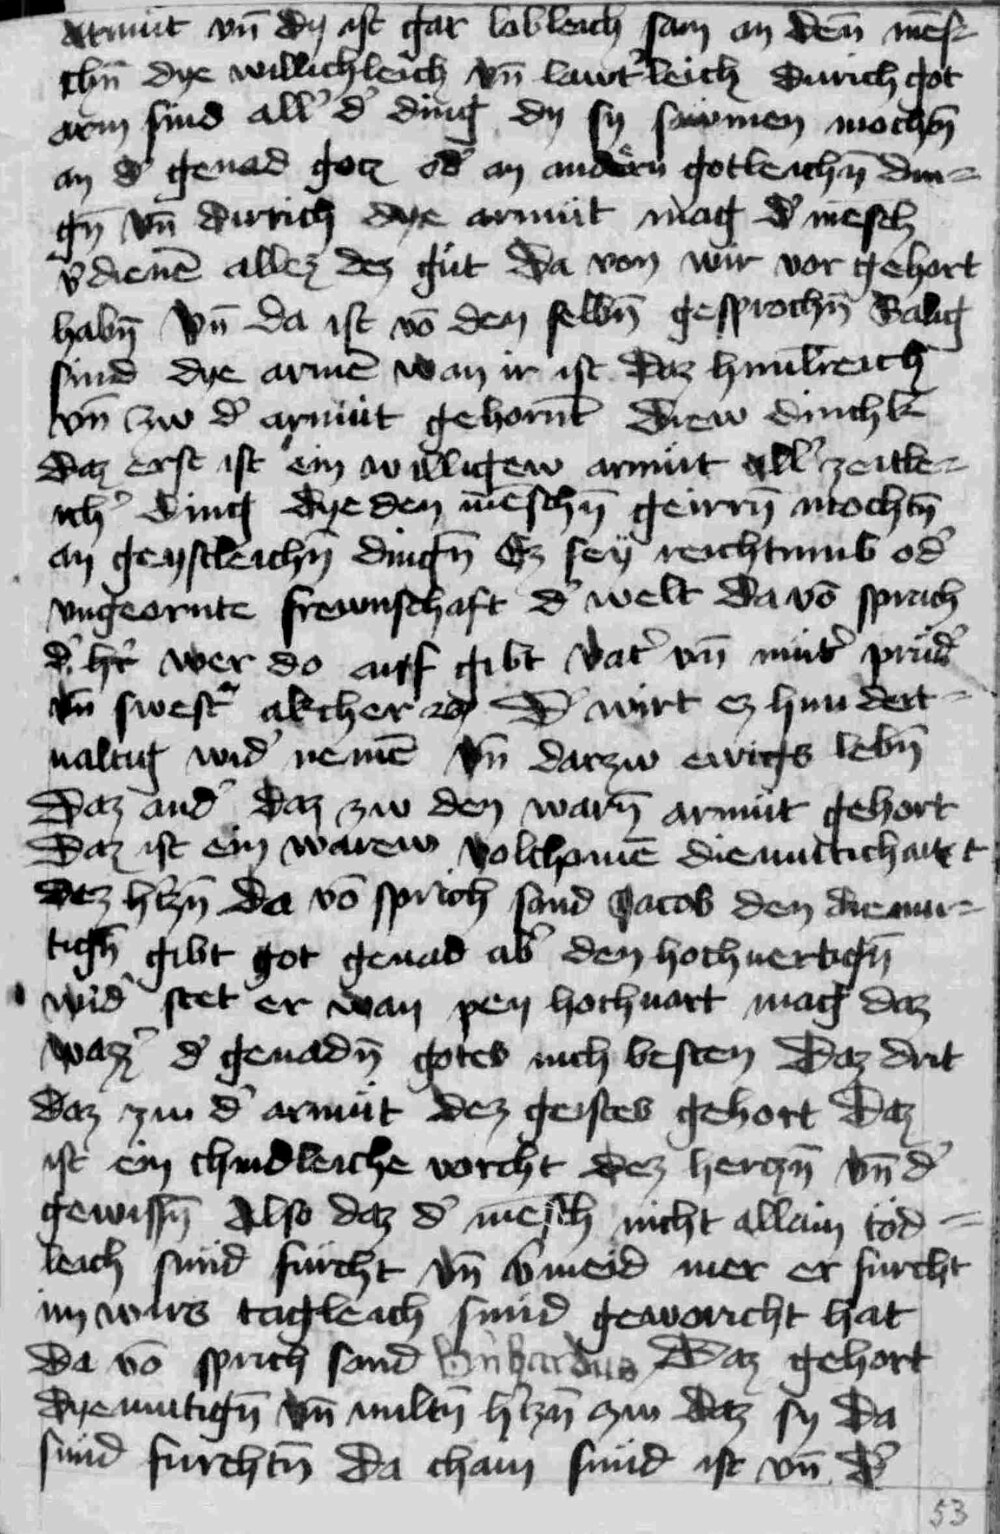 armüt vn̄ dy ist gar lobleich sam an den̄ mēs-
chn̄ dye willichleich vn̄ lawt'leich durich got
arm sind all' d' ding dy sy sawmen mochtn̄
an d' genad gotz od' an andern gotleichn̄ din-
gn̄ vn̄ durich dye armüt mag d' mēsch
v̄dienē allez dez güt da von wir vor gehort
habn̄ vn̄ da ist vō den selbn̄ gesprochn̄ Salig
sind dye armē wan ir ist daz himilreich
vn̄ zw d' armüt gehornt drew dinchk
daz erst ist ein willigew armüt all' zeitle-
ich' ding dye den mēschn̄ geirrn̄ mochtn̄
an geystleichn̄ dingn̄ Ez sey reichtumb od'
vngeornte frewnschaft d' welt da vō sprach
d' h'r wer do auf gibt vat' vn̄ mut' prüd'
vn̄ swest' akcher rc D' wirt ez hundert-
ualtig wid' nemē vn̄ darzw ewigs lebn̄
Daz and' daz zw den warn̄ armüt gehort
Daz ist ein warew volchomē diemutichait
dez h'tzn̄ da vō sprich sand Jacob den diemu-
tign̄ gibt got genad ab' den hochuertign̄
wid' stet er wan pey hochuart mag daz
wazz' d' genadn̄ gotes nich besten Daz drit
daz zw d' armüt dez geistes gehort Daz
ist ein chindleiche vorcht dez herczn̄ vn̄ d'
gewissn̄ Also daz d' mēsch nicht allain töd-
leich sünd fürcht vn̄ v̄meid mer er fürcht
im wurs tagleich sünd geworicht hat
da vō sprich sand Bernhardus Daz gehort
dyemutign̄ vn̄ miltn̄ h'tzn̄ zw daz sy da
sünd furchtn̄ da chain sünd ist vn̄ d'
53